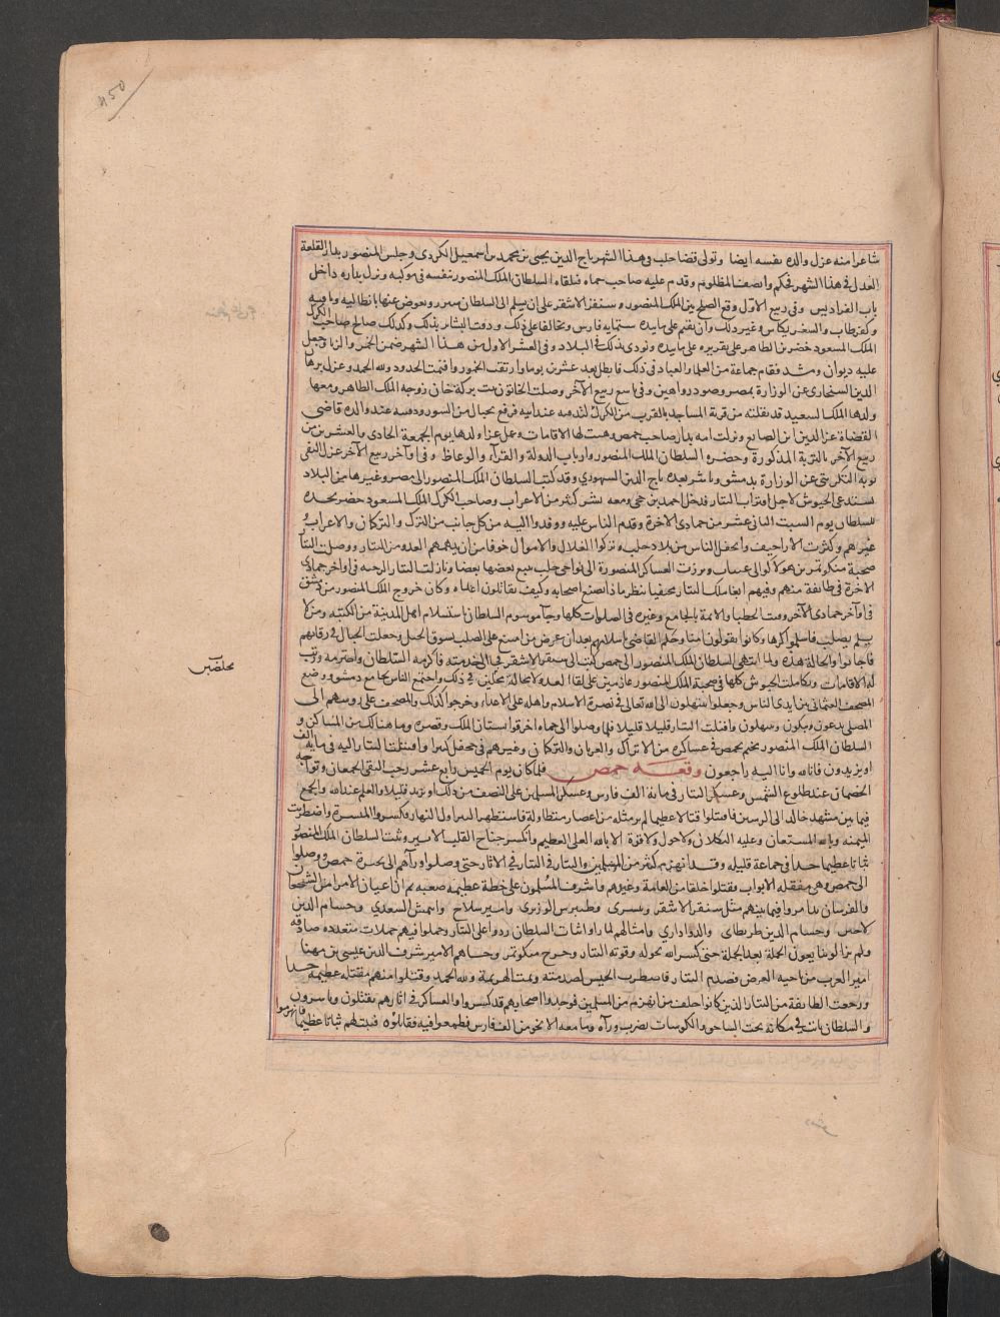 450
شاغرا منه عزل والده نفسه ايضا وتولى قضا حلب في هذا الشهر تاج الدين يحيى بن محمد بن اسمعيل الكردي وجلس المنصور بدار القلعة
العدل في هذا الشهر فحكم وانصف المظلوم وقدم عليه صاحب حماه فتلقاه السلطان الملك المنصور نفسه في موكبه ونزل بداره داخل
باب الفراديس وفي ربيع الاول وقع الصلح بين الملك المنصور وسنقر الاشقر على ان يسلم الى السلطان شيزر ويعوض عنها بانطاكيه وفاميه
وكفرطاب والشغر بكاس وغير ذلك وان يقيم على ما بيده ستمايه فارس وتحالفا على ذلك ودقت البشاير بذلك وكذلك صالح صاحب الكرك
الملك المسعود خضر بن الظاهر على تقريره على ما بيده ونودي بذلك في البلاد وفي العشر الاول من هذا الشهر ضمن الخمر والزنا وجعل
عليه ديوان ومشد فقام جماعة من العلما والعباد في ذلك فابطل بعد عشرين يوما واريقت الخمور واقيمت الحدود ولله الحمد وعزل برهان
الدين السنجاري عن الوزارة بمصر وصودر واهين وفي تاسع ربيع الآخر وصلت الخاتون بنت بركة خان زوجه الملك الظاهر ومعها
ولدها الملك السعيد قد نقلته من قرية المساجد بالقرب من الكرك لتدفنه عند ابيه فرفع بحبال من السور ودفنه عند والده قاضي
القضاة عز الدين ابن الصايغ ونزلت امه بدار صاحب حمص وهيئت لها الاقامات وعمل عزا ولدها يوم الجمعة الحادي والعشرين من
ربيع الآخر بالتربة المذكورة وحضره السلطان الملك المنصور وارباب الدولة والقراء والوعاظ وفي اواخر ربيع الآخر عزل التقي
توبه التكريتي عن الوزارة بدمشق وباشر بعده تاج الدين السنهوري وقد كتب السلطان الملك المنصور الى مصر وغيرها من البلاد
يستدعي الجيوش لاجل اقتراب التتار فدخل احمد بن حجي ومعه بشر كثير من الاعراب وصاحب الكرك الملك المسعود حضر نجده
للسلطان يوم السبت الثاني عشر من جمادى الاخرة وقدم الناس عليه ووفدوا اليه من كل جانب من الترك والتركمان والاعراب و
غيرهم وكثرت الاراجيف وانجفل الناس من بلاد حلب وتركوا الغلال والاموال خوفا من ان يدهمهم العدو من التتار ووصلت التتار
صحبة منكوتمر بن هولاكو الى عنتاب وبرزت العساكر المنصورة الى نواحي حلب يتبع بعضها بعضا ونازلت التتار الرحبه في اواخر جمادى
الآخرة في طائفة منهم وفيهم ابغا ملك التتار مختفيا ينظر ماذا تصنع اصحابه وكيف يقاتلون اعداءه وكان خروج الملك المنصور من دمشق
في اواخر جمادى الآخر وقنت الخطبا والايمة بالجامع وغيره في الصلوات كلها وجآ مرسوم السلطان باستسلام اهل المدينة من الكتبه ومن لا
يسلم يصلب فاسلموا كرها وكانوا يقولون امنا وحكم القاضي باسلامهم بعد ان عرض من امتنع على الصلب بسوق الخيل وجعلت الحبال في رقابهم
فاجابوا والحالة هذه ولما انتهى السلطان الملك المنصور الى حمص كتب الى سنقر الاشقر في الى خدمته فاكرمه السلطان واحترمه ورتب
له الاقامات وتكاملت الجيوش كلها في صحبة الملك المنصور عازمين على لقا العدو لا محالة مخلصين في ذلك واجتمع الناس بجامع دمشق ووضع
المصحف العثماني بين ايدي الناس وجعلوا يبتهلون الى الله تعالى في نصرة الاسلام واهله على الاعداء وخرجوا كذلك والمصحف على رءوسهم الى
المصلى يدعون ويبكون ويبتهلون واقبلت التتار قليلا قليلا فلما وصلوا الى حماه احرقوا بستان الملك وقصره وما هنالك من المساكن و
السلطان الملك المنصور مخيم بحمص في عساكره من الاتراك والعربان والتركمان وغيرهم في جحفل كبير واقبلت التتار اليه في مايه الف
او يزيدون فانا لله وانا اليه راجعون وقعــة حمص فلما كان يوم الخميس رابع عشر رجب التقى الجمعان وتواجه
الخصمان عند طلوع الشمس وعسكر التتار في ماية الف فارس وعسكر المسلمين على النصف من ذلك او يزيد قليلا والعلم عند الله والجمع
فيما بين مشهد خالد الى الرستن فاقتتلوا قتالا عظيما لم ير مثله من اعصار متطاولة فاستظهر التتار اول النهار وكسروا الميسرة واضطربت
الميمنه وبالله المستعان وعليه التكلان ولا حول ولا قوة الا بالله العلي العظيم وانكسر جناح القلب الايسر وثبت السلطان الملك المنصور
ثباتا عظيما جدا في جماعة قليله وقد انهزم كثير من المسلمين والتتار في اثارهم حتى وصلوا وراهم الى بحيرة حمص ووصلوا
الى حمص وهي مغلقه الابواب فقتلوا خلقا من العامة وغيرهم واشرف المسلمون على خطة عظيمة صعبه ثم ان اعيان الامرا من الشجعان
والفرسان تدامروا فيما بينهم مثل سنقر الاشقر وبيسرى وطيبرس الوزيري وامير سلاح وايتمش السعدي وحسام الدين
لاجين وحسام الدين طرنطاي والدواداري وامثالهم لما راوا ثبات السلطان ردوا على التتار وحملوا فيهم حملات متعدده صادقه
ولم يزالوا يتابعون الحملة بعد الحملة حتى كسر الله بحوله وقوته التتار وجرح منكوتمر وجاهم الامير شرف الدين عيسى بن مهنا
امير العرب من ناحيه العرض فصدم التتار فاضطرب الجيش لصدمته وتمت الهزيمة ولله الحمد وقتلوا منهم مقتله عظيمة جدا
ورجعت الطائفة من التتار الذين كانوا خلف من انهزم من المسلمين فوجدوا اصحابهم قد كسروا والعساكر في اثارهم يقتلون وياسرون
والسلطان ثابت في مكانه تحت السناجق والكوسات تضرب وراه وما معه الا نحو من الف فارس فطمعوا فيه فقاتلوه فثبت لهم ثباتا عظيما فانهزموا
مخلصين